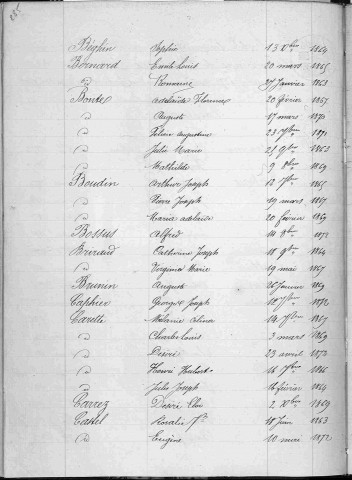 Béghin Sophie 13 Xbre 1864
Bernard Emile Louis 20 mars 1865
d° Romaine 27 Janvier 1863
Bonte Adelaïde Florence 20 février 1867
d° Auguste 17 mars 1870
d° Augustine 23 7bre 1871
d° Julie Marie 21 9bre 1863
d° Mathilde 9 8bre 1869
Boudin Arthur Joseph 12 7bre 1865
d° Pierre Joseph 19 mars 1867
d° Maria adelaïde 20 février 1869
Bossus Alfred 14 8bre 1872
Catherine Joseph 18 9bre 1864
d° Virginie Marie 19 mai 1867
Brunin Auguste 26 Janvier 1869
Georges Joseph 12 7bre 1872
Carette Mélanie Célina 14 7bre 1867
d° Charles Louis 3 mars 1869
d° Désiré 23 avril 1872
d° Henri Hubert 16 7bre 1866
d° Julie Joseph 16 février 1864
Carrez Désiré Eloi 2 Xbre 1869
Castel Rosalie Jh 18 Juin 1863
d° Eugène 10 mai 1872